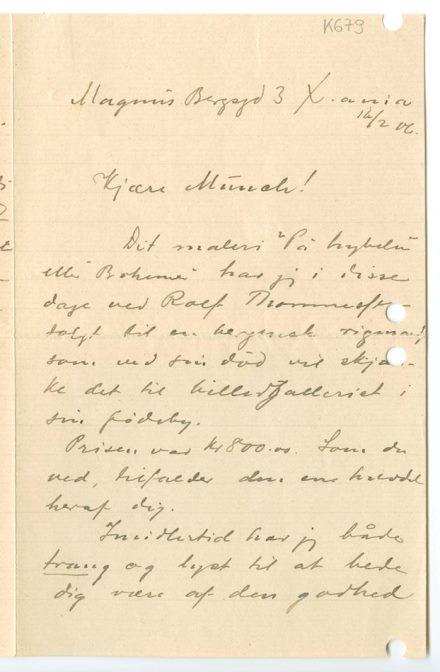 K679
Magnus Bergsgd 3 X.ania
12/2 06.
Kjære Münch!
Dit maleri "På hybelen
eller Bohemer" har jeg i disse
dage ved Rolf Thommessen
solgt til en bergensk rigmand,
som ved sin død vil skjæn-
ke det til billedgalleriet i
sin fødeby.
Prisen var Kr 800.00. Som du
ved, tilfalder den ene halvdel
heraf dig.
Imidlertid har jeg både
trang og lyst til at bede
dig være af den godhed